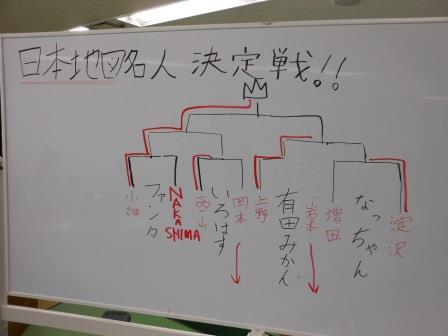 日本地図名人 決定戦!!
小畑
ファンタ
NAKASHIMA
西山
いろはす
岡本
上野
有田みかん
岩本
増田
なっちゃん
淀沢